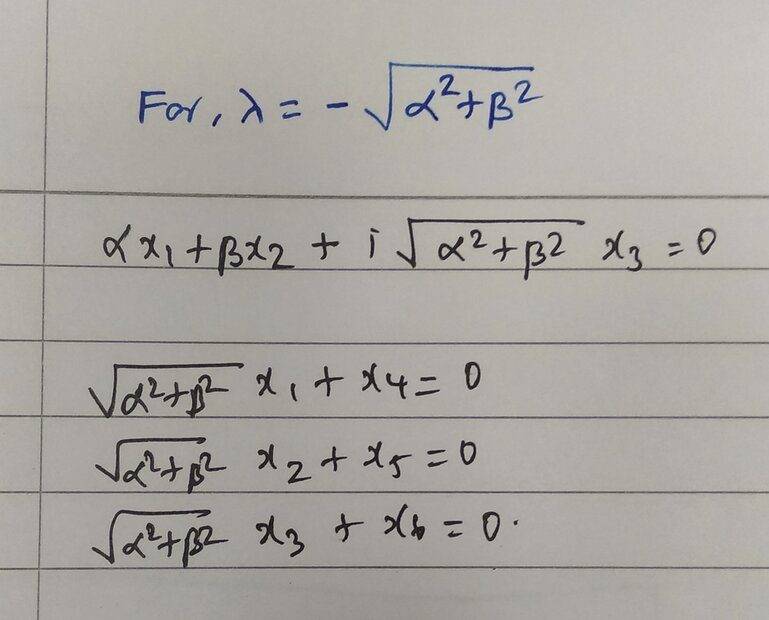 For, λ = - √(α²+β²)
αx₁ + βx₂ + i √(α²+β²) x₃ = 0
√(α²+β²) x₁ + x₄ = 0
√(α²+β²) x₂ + x₅ = 0
√(α²+β²) x₃ + x₆ = 0.